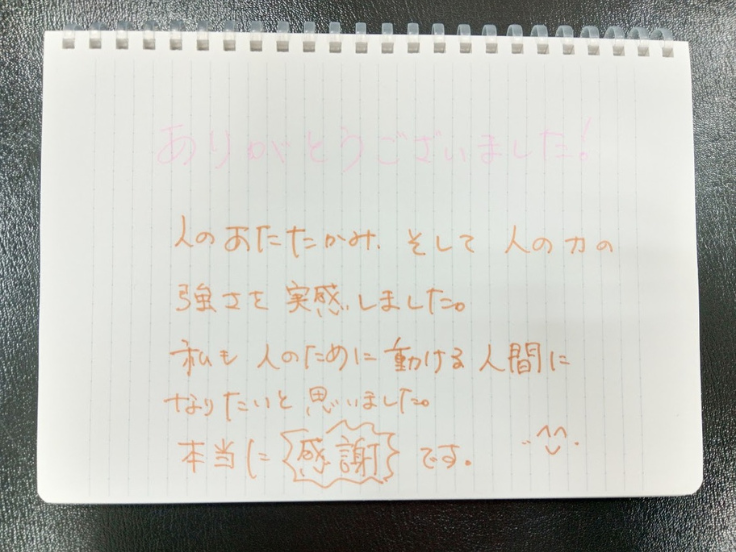 ありがとうございました!
人のあたたかみ、そして人の力の
強さを実感しました。
私も人のために動ける人間に
なりたいと思いました。
本当に感謝です。